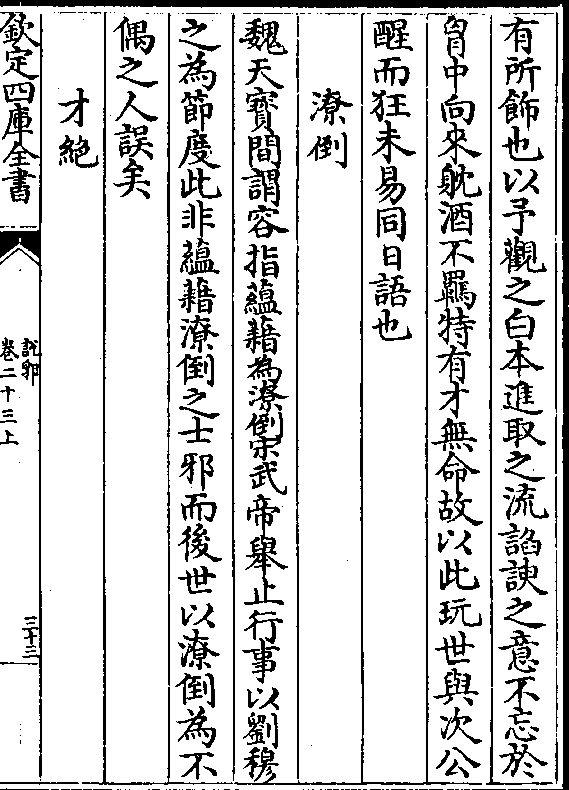 有所飾也以予觀之白本進取之流諂諛之意不忘於
胷中向來躭酒不羈特有才無命故以此玩世與次公
醒而狂未易同日語也
潦倒
魏天寳間謂容指藴藉為潦倒宋武帝舉止行事以劉穆
之為節度此非藴藉潦倒之士邪而後世以潦倒為不
偶之人誤矣
才絶
欽定四庫全書
說郛
卷二十三上
三十三